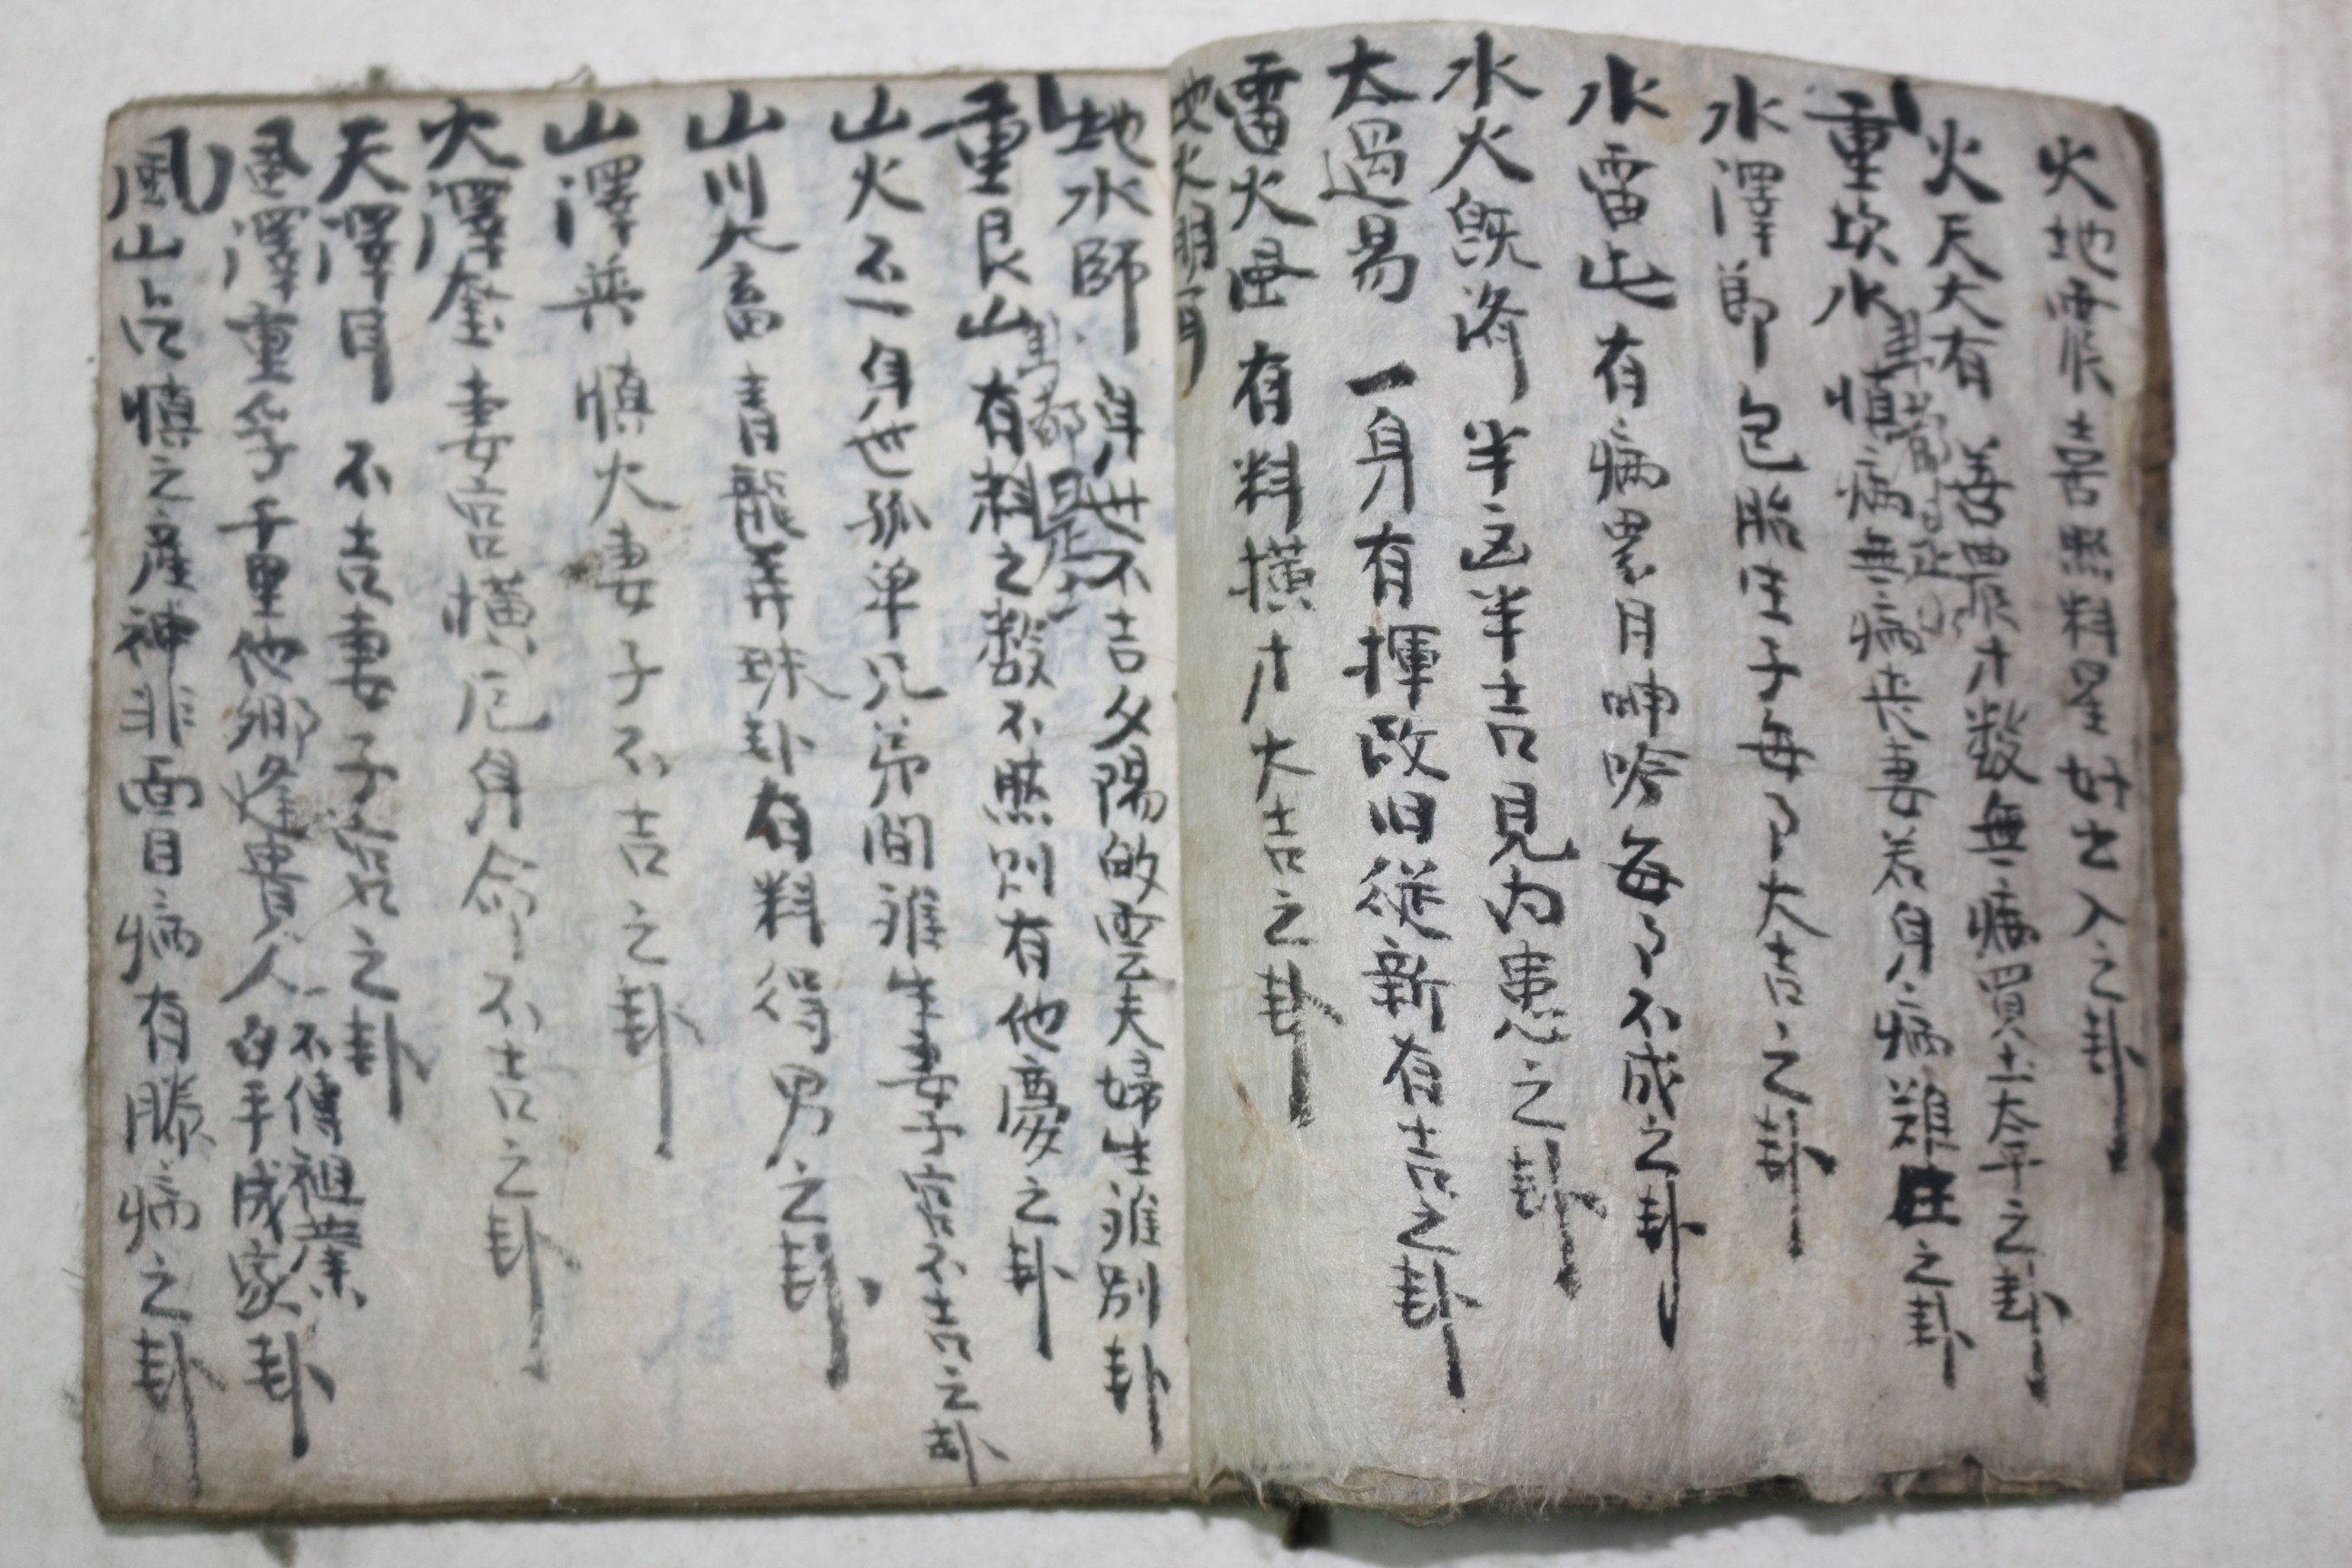 火地 喜 料星 好出入之卦
火天大有 善 才数無病買土太平之卦
重坎水 慎病無病丧妻若身病難 之卦
水澤節 包胎生子每了大吉之卦
水雷屯 有病 月呻吟每了不成之卦
水火旣済 半凶半吉見內患之卦
太過易 一身有揮改旧從新有吉之卦
雷火 有料橫才大吉之卦
地火明
地水師 身世不吉夕陽 雲夫婦生離別卦
重艮山 有料之数不然則有他慶之卦
山火不一身世孤单兄弟間離生妻子宮不吉之卦
山川大畜 青龍弄珠卦有料得男之卦
山澤 慎火妻子不吉之卦
火澤奎 妻宮橫厄身命不吉之卦
天澤 不吉妻子宮之卦
風澤重孚 千里他鄉逢貴人 不傳祖業 白手成家卦
風山占 慎之產神非面目病有勝病之卦